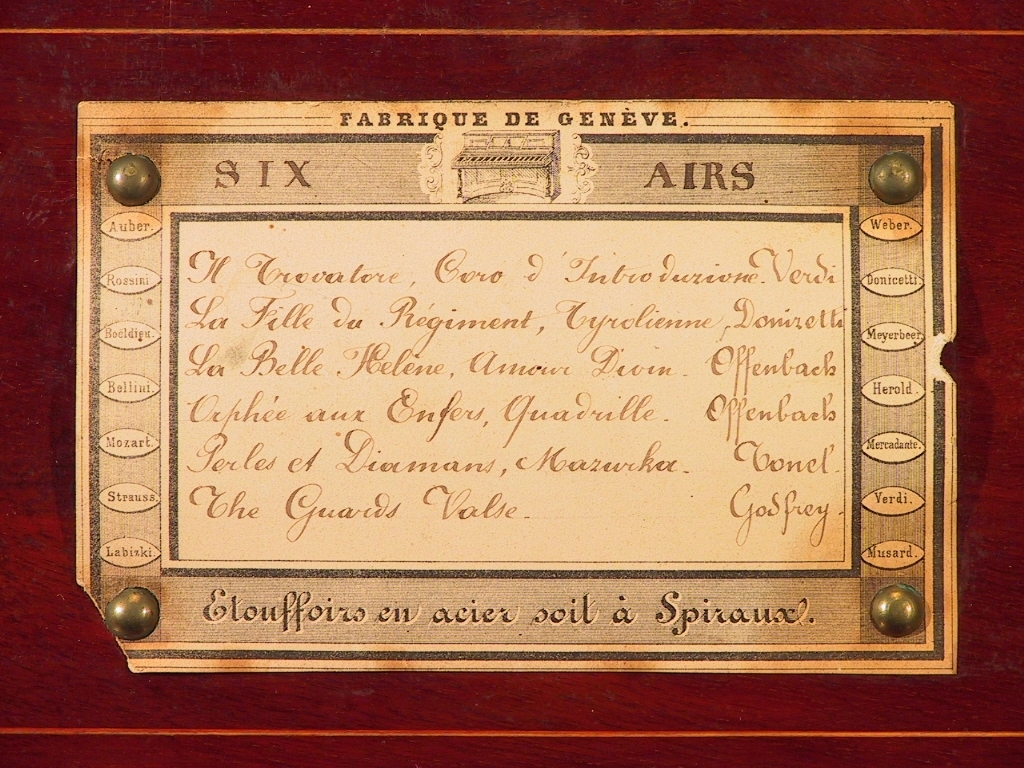 FABRIQUE DE GENÈVE.
SIX AIRS
Auber.
Rossini
Boeldieu.
Bellini.
Mozart.
Strauss.
Labizki.
Il Trovatore, Coro d'Introduzione. Verdi
La Fille du Régiment, Tyrolienne, Donizetti
La Belle Helène, Amour Divin. Offenbach
Orphée aux Enfers, Quadrille. Offenbach
Perles et Diamans, Mazurka. Tonel.
The Guards Valse. Godfrey.
Weber.
Donicetti.
Meyerbeer.
Herold.
Mercadante.
Verdi.
Musard.
Etouffoirs en acier soit à Spiraux.